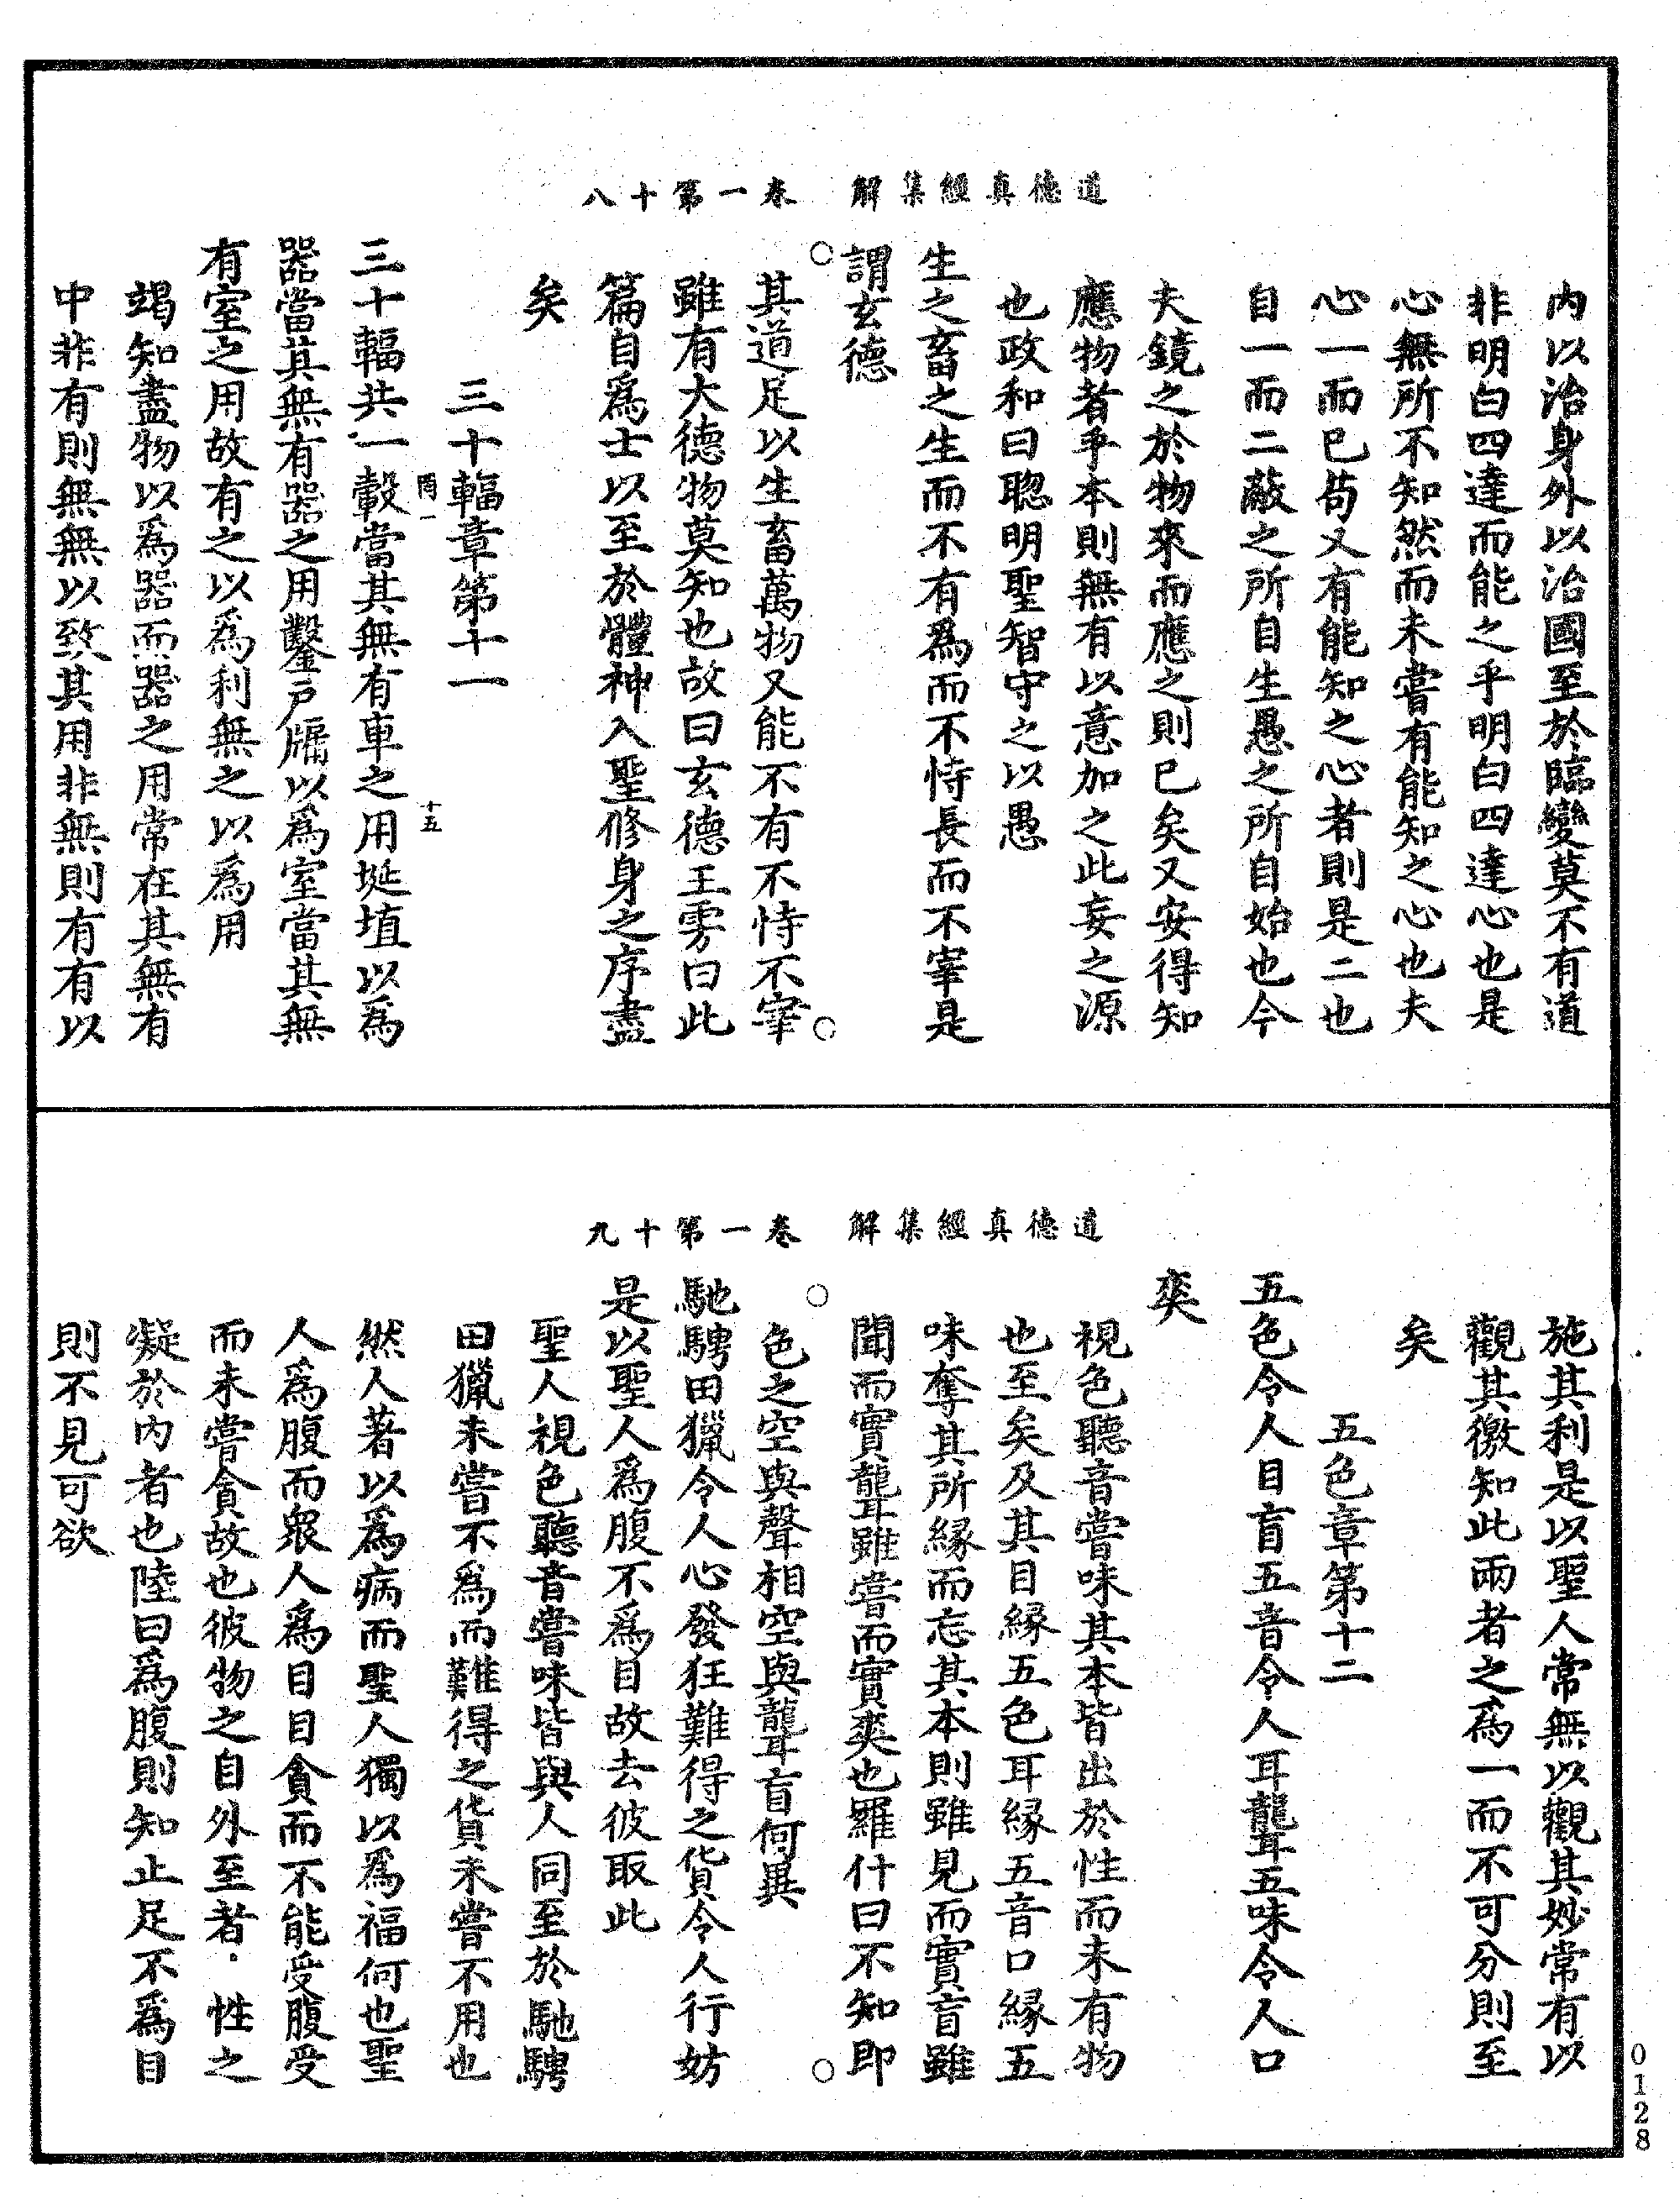 道德真經集解　卷一第十八
內以治身外以治國至於臨變莫不有道
非明白四達而能之乎明白四達心也是
心無所不知然而未嘗有能知之心也夫
心一而已苟又有能知之心者則是二也
自一而二蔽之所自生愚之所自始也今
夫鏡之於物來而應之則已矣又安得知
應物者乎本則無有以意加之此妄之源
也政和曰聦明聖智守之以愚
生之畜之生而不有爲而不恃長而不宰是
謂玄德
其道足以生畜萬物又能不有不恃不宰
雖有大德物莫知也故曰玄德王雱曰此
篇自爲士以至於體神入聖修身之序盡
矣
三十輻章第十一
罔一　十五
三十輻共一轂當其無有車之用埏埴以爲
器當其無有器之用鑿戶牖以爲室當其無
有室之用故有之以爲利無之以爲用
竭知盡物以爲器而器之用常在其無有
中非有則無無以致其用非無則有有以
道德真經集解　卷一第十九
施其利是以聖人常無以觀其妙常有以
觀其徼知此兩者之爲一而不可分則至
矣
五色章第十二
五色令人目盲五音令人耳聾五味令人口
爽
視色聽音嘗味其本皆出於性而未有物
也至矣及其目緣五色耳緣五音口緣五
味奪其所緣而忘其本則雖見而實盲雖
聞而實聾雖嘗而實爽也羅什曰不知即
色之空與聲相空與聾盲何異
馳騁田獵令人心發狂難得之貨令人行妨
是以聖人爲腹不爲目故去彼取此
聖人視色聽音嘗味皆與人同至於馳騁
田獵未嘗不爲而難得之貨未嘗不用也
然人著以爲病而聖人獨以爲福何也聖
人爲腹而衆人爲目目貪而不能受腹受
而未嘗貪故也彼物之自外至者·性之
凝於內者也陸曰爲腹則知止足不爲目
則不見可欲
0128